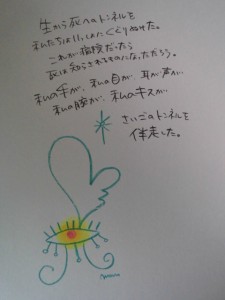 生から死へのトンネルを
私たちはいっしょにくぐりぬけた。
これが指揮だったら
死は知らされるものになっただろう。
私の手が、私の目が、耳が声が
私の膝が、私のキスが
さいごのトンネルを
伴走した。